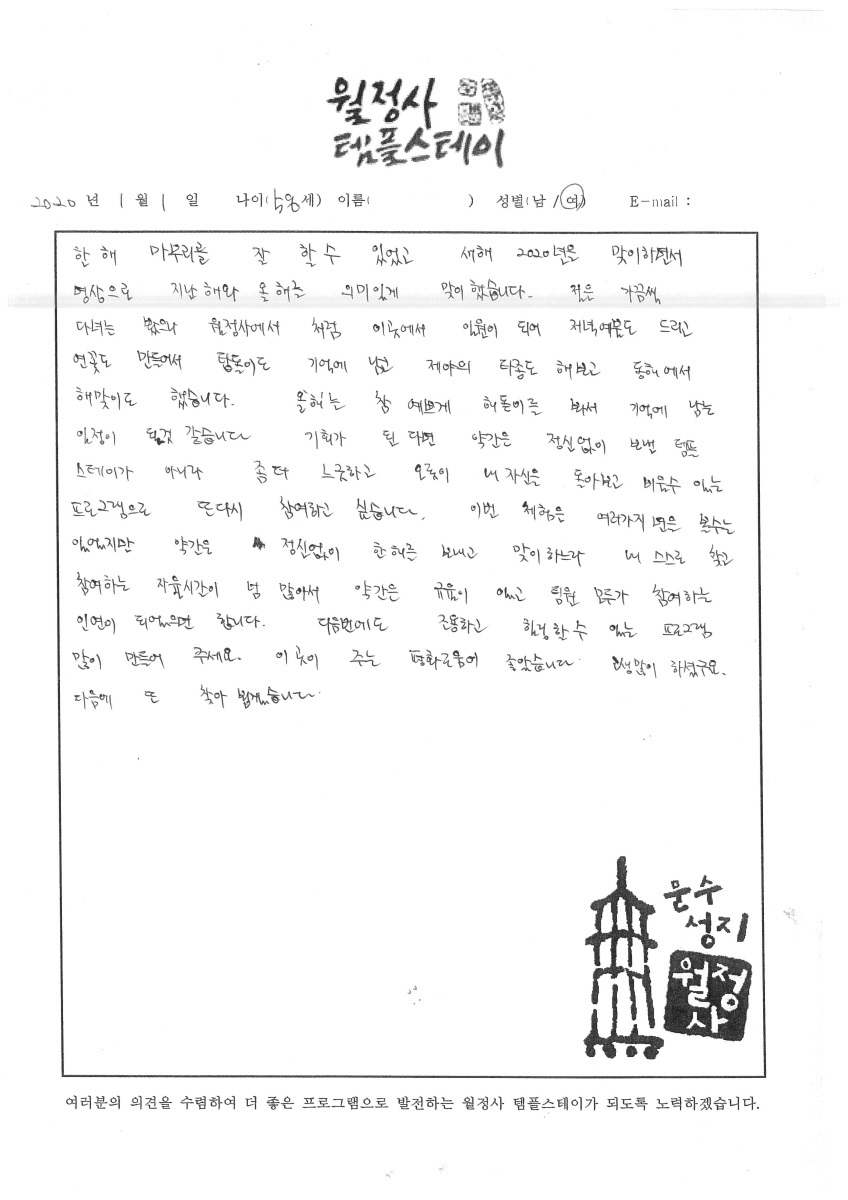 월정사
템플스테이
2020 년 1 월 1 일 나이( 세) 이름( ) 성별(남/여) E-mail :
한 해 마무리를 잘 할 수 있었고 새해 2020년을 맞이하면서
명상으로 지난 해와 올 해를 의미있게 맞이 했습니다. 절은 가끔씩
다녀는 봤으나 월정사에서 처점 이곳에서 일원이 되어 저녁예불도 드리고
연꽃도 만들어서 탑돌이도 기억에 남고 제야의 타종도 해보고 동해에서
해맞이도 했습니다. 올해는 참 예쁘게 해돋이를 봐서 기억에 남는
일정이 될것 같습니다 기회가 된 다면 약간은 정신없이 보낸 템플
스테이가 아니라 좀더 느긋하고 오롯이 내 자신을 돌아보고 비울수 있는
프로그램으로 또다시 참여하고 싶습니다. 이번 체험은 여러가지 면을 볼수는
있었지만 약간은 정신없이 한해를 보내고 맞이하느라 내 스스로 찾고
참여하는 자율시간이 넘 많아서 약간은 규율이 있고 팀원 모두가 참여하는
인연이 되었으면 합니다. 다음번에도 조용하고 힐링할 수 있는 프로그램
많이 만들어 주세요. 이곳이 주는 평화로움이 좋았습니다 고생많이 하셨구요.
다음에 또 찾아 뵙겠습니다.
문수
성지
월정
사
여러분의 의견을 수렴하여 더 좋은 프로그램으로 발전하는 월정사 템플스테이가 되도록 노력하겠습니다.